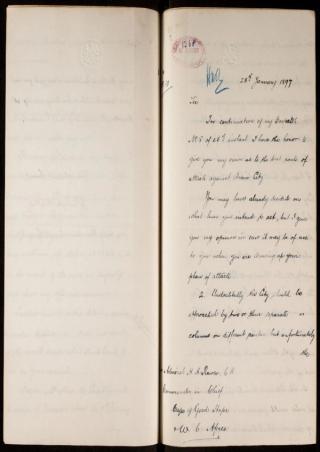 28th January 1897
Sir
In continuation of my Despatch
No 5 of 26th instant I have the honor to
give you my views as to the best mode of
attack against Benin City
You may have already decided on
what lines you intend to act, but I give
you my opinion in case it may be of use
to you when you are drawing up your
plan of attack
2. Undoubtedly the City should be
approached by two or three separate
columns on different points but unfortunately
the
Admiral H. H. Rawson, C.B.
Commander in Chief
Cape of Good Hope
& W. C. Africa